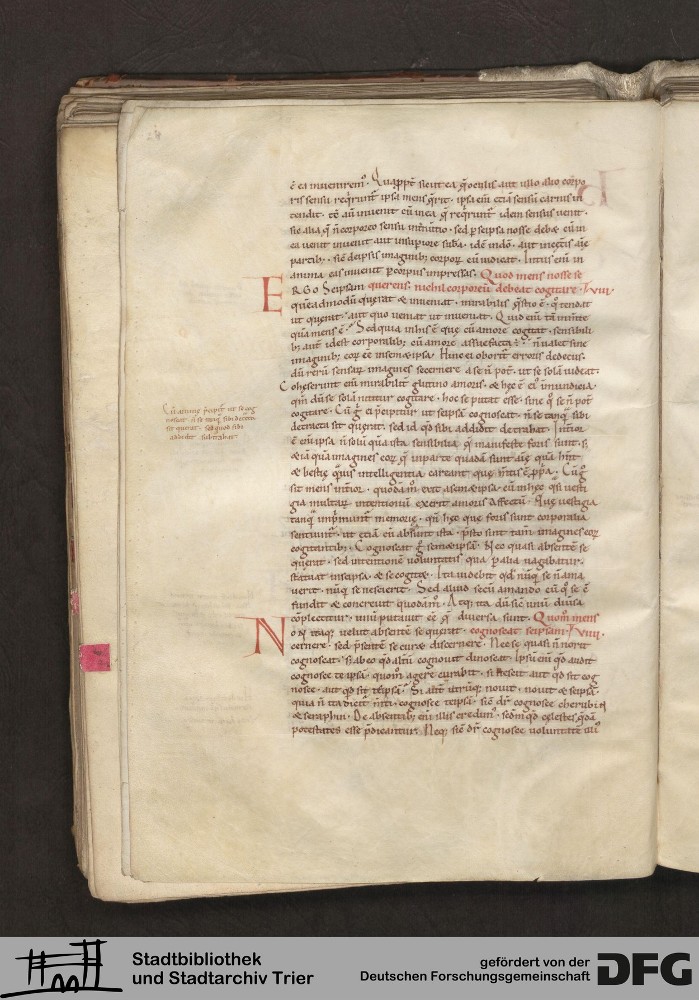 ē ea invenirem̄. Quapp̄t sicut ea q̄ oculis aut ullo alio corpo
ris sensu req̄runt᷑ ipsa mens q̄rit. ipsa eni etiā sensū carnis in
tendit. tē aū invenit cū in ea q̄ req̄runt᷑ idem sensus venit.
sic alia q̄ n̄ corporeo sensu internuntio. sed p̄ seipsā nosse debet cū in
ea venit invenit aut in superiore
partib;. sic de ipsis imaginib; corporū cū iudicat. Intus eni in
anima eas invenit p̄ corpus impressas. Quod mens nosse se
ERGO Seipsam querens. nichil corporeū debeat cogitare.
quē admodū querat & inveniat. mirabilis q̄stio ē. q̄ tendat
ut querat. aut quo veniat ut inveniat. Quid eni tā in mente
quā mens ē. Sed quia in his ē que cū amore cogitat. sensibili
b; aut id est corporalib; cū amore assuefacta ē. n̄ valet sine
imaginib; eorū ēē in semetipsa. Hinc ei oborit᷑ erroris dedecus.
dū rerū sensarū imagines secernere a se n̄ pot̄. ut se solā videat.
Coheserunt eni mirabilit᷑ glutino amoris. & hec ē ei᷑ inmundicia.
qm̄ dū se solā nititur cogitare. hoc se putat esse. sine q̄ se n̄ pot̄
cogitare. Cū g̊ ei p̄cipitur ut seipsā cognoscat. n̄ se tanq̄ sibi
detracta sit querat. sed id qd̄ sibi addidit detrahat. Interior
ē eni ipsa n̄ solū quā ista sensibilia q̄ manifeste foris sunt. s;
& iā quā imagines eorū q̄ in parte quadā sunt anime quā hn̄t
& bestie q̄vis intelligentia careant que mentis ē p̄pria. Cū g̊
sit mens interior. quodam̄ exit a semetipsa. cū in hec q̄si vesti
gia multarū intentionū exerit amoris affectū. Que vestigia
tanq̄ inprimunt᷑ memorie. qn̄ hec que foris sunt corporalia
sentiunt᷑. ut etiā cū absunt ista. p̄sto sint tam̄ imagines eorū
cogitantib;. Cognoscat g̊ semetipsā. Nec quasi absentē se
querat. sed intentionē voluntatis qua p̄ alia vagabatur.
statuat in seipsa. & se cogitet. Ita videbit qd̄ nūq̄ se n̄ ama
verit. nūq̄ se nescierit. Sed aliud secū amando cū eo se ē
fundit & concrevit quodam̄. Atq; ita dū sic unū diversa
cōplectitur. unū putavit ēē q̄ diversa sunt. Quom̄ mens
NON itaq; velut absentē se querat. cognoscat seipsam.
cernere. sed p̄sentē se curet discernere. Nec se quasi n̄ norit
cognoscat. s; ab eo qd̄ alterū cognovit dinoscat. Ipsū eni qd̄ audit
cognosce te ipsā. quom̄ agere curabit. si nescit aut qd̄ sit cog
nosce. aut qd̄ sit teipsā. Si aut̄ utrūq; novit. novit & seipsā.
quia n̄ ita dicit᷑ menti. cognosce teipsā. sic dr̄ cognosce cherubin
& seraphin. De absentib; eni illis credim᷑. sedm̄ qd̄ celestes q̄dā
potestates esse p̄dicantur. Neq; sic dr̄ cognosce voluntatē illi᷑
Cū animę p̄cipit᷑ ut se cog
noscat. n̄ se tanq̄ sibi detractā
sit querat. sed quod sibi
addidit subtrahat
Stadtbibliothek
und Stadtarchiv Trier
gefördert von der
Deutschen Forschungsgemeinschaft
DFG